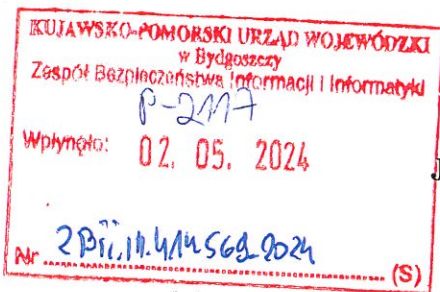 KUJAWSKO-POMORSKI URZĄD WOJEWÓDZKI
w Bydgoszczy
Zespół Bezpieczeństwa Informacji i Informatyki
P-2117
Wpłynęło: 02. 05. 2024
J
Nr (S)